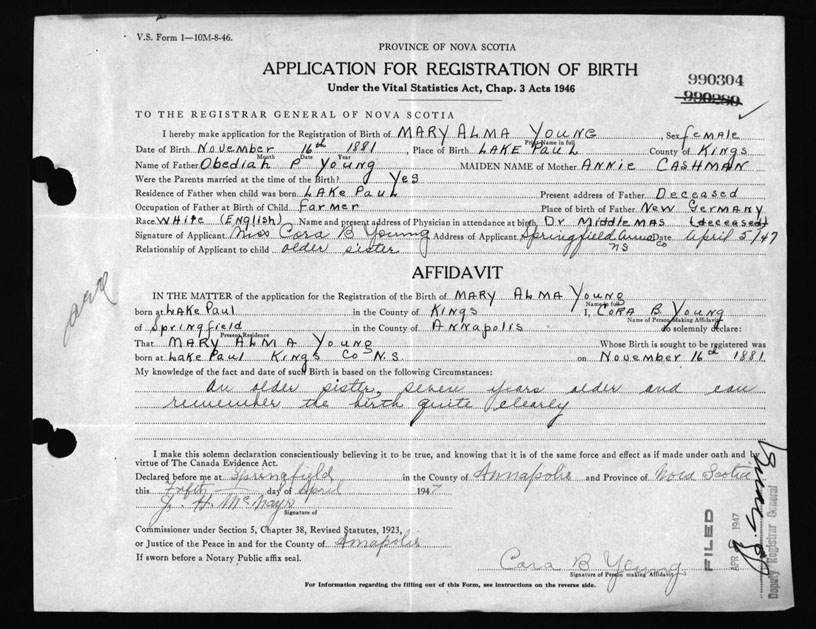 V.S. Form 1—10M-8-46.
PROVINCE OF NOVA SCOTIA
APPLICATION FOR REGISTRATION OF BIRTH
990304
Under the Vital Statistics Act, Chap. 3 Acts 1946
990280
TO THE REGISTRAR GENERAL OF NOVA SCOTIA
I hereby make application for the Registration of Birth of MARY ALMA YOUNG, Sex female
Print Name in full
Date of Birth NOVEMBER 16th 1881, Place of Birth LAKE PAUL County of KINGS
Month Date Year
Name of Father Obediah P Young MAIDEN NAME of Mother ANNIE CASHMAN
Were the Parents married at the time of the Birth? Yes
Residence of Father when child was born LAKE PAUL Present address of Father Deceased
Occupation of Father at Birth of Child farmer Place of birth of Father New Germany
Race White (English) Name and present address of Physician in attendance at birth Dr Middlemas (deceased)
Signature of Applicant Miss Cora B Young Address of Applicant Springfield Anna Co NS Date April 5/47
Relationship of Applicant to child older sister
AFFIDAVIT
IN THE MATTER of the application for the Registration of the Birth of MARY ALMA YOUNG
Name in full
born at LAKE PAUL in the County of KINGS I, CORA B YOUNG
Name of Person Making Affidavit
of Springfield in the County of ANNAPOLIS do solemnly declare:
Present Residence
That MARY ALMA YOUNG Whose Birth is sought to be registered was
born at Lake Paul Kings Co N.S. on November 16th 1881
My knowledge of the fact and date of such Birth is based on the following Circumstances:
An older sister, seven years older and can
remember the birth quite clearly
I make this solemn declaration conscientiously believing it to be true, and knowing that it is of the same force and effect as if made under oath and by
virtue of The Canada Evidence Act.
Declared before me at Springfield in the County of Annapolis and Province of Nova Scotia
this Fifth day of April 1947
J. H. McNayr
Signature of
Commissioner under Section 5, Chapter 38, Revised Statutes, 1923,
or Justice of the Peace in and for the County of Annapolis
If sworn before a Notary Public affix seal.
Cora B Young
Signature of Person making Affidavit
For Information regarding the filling out of this Form, see instructions on the reverse side.
FILED
APR 1947
Deputy Registrar General